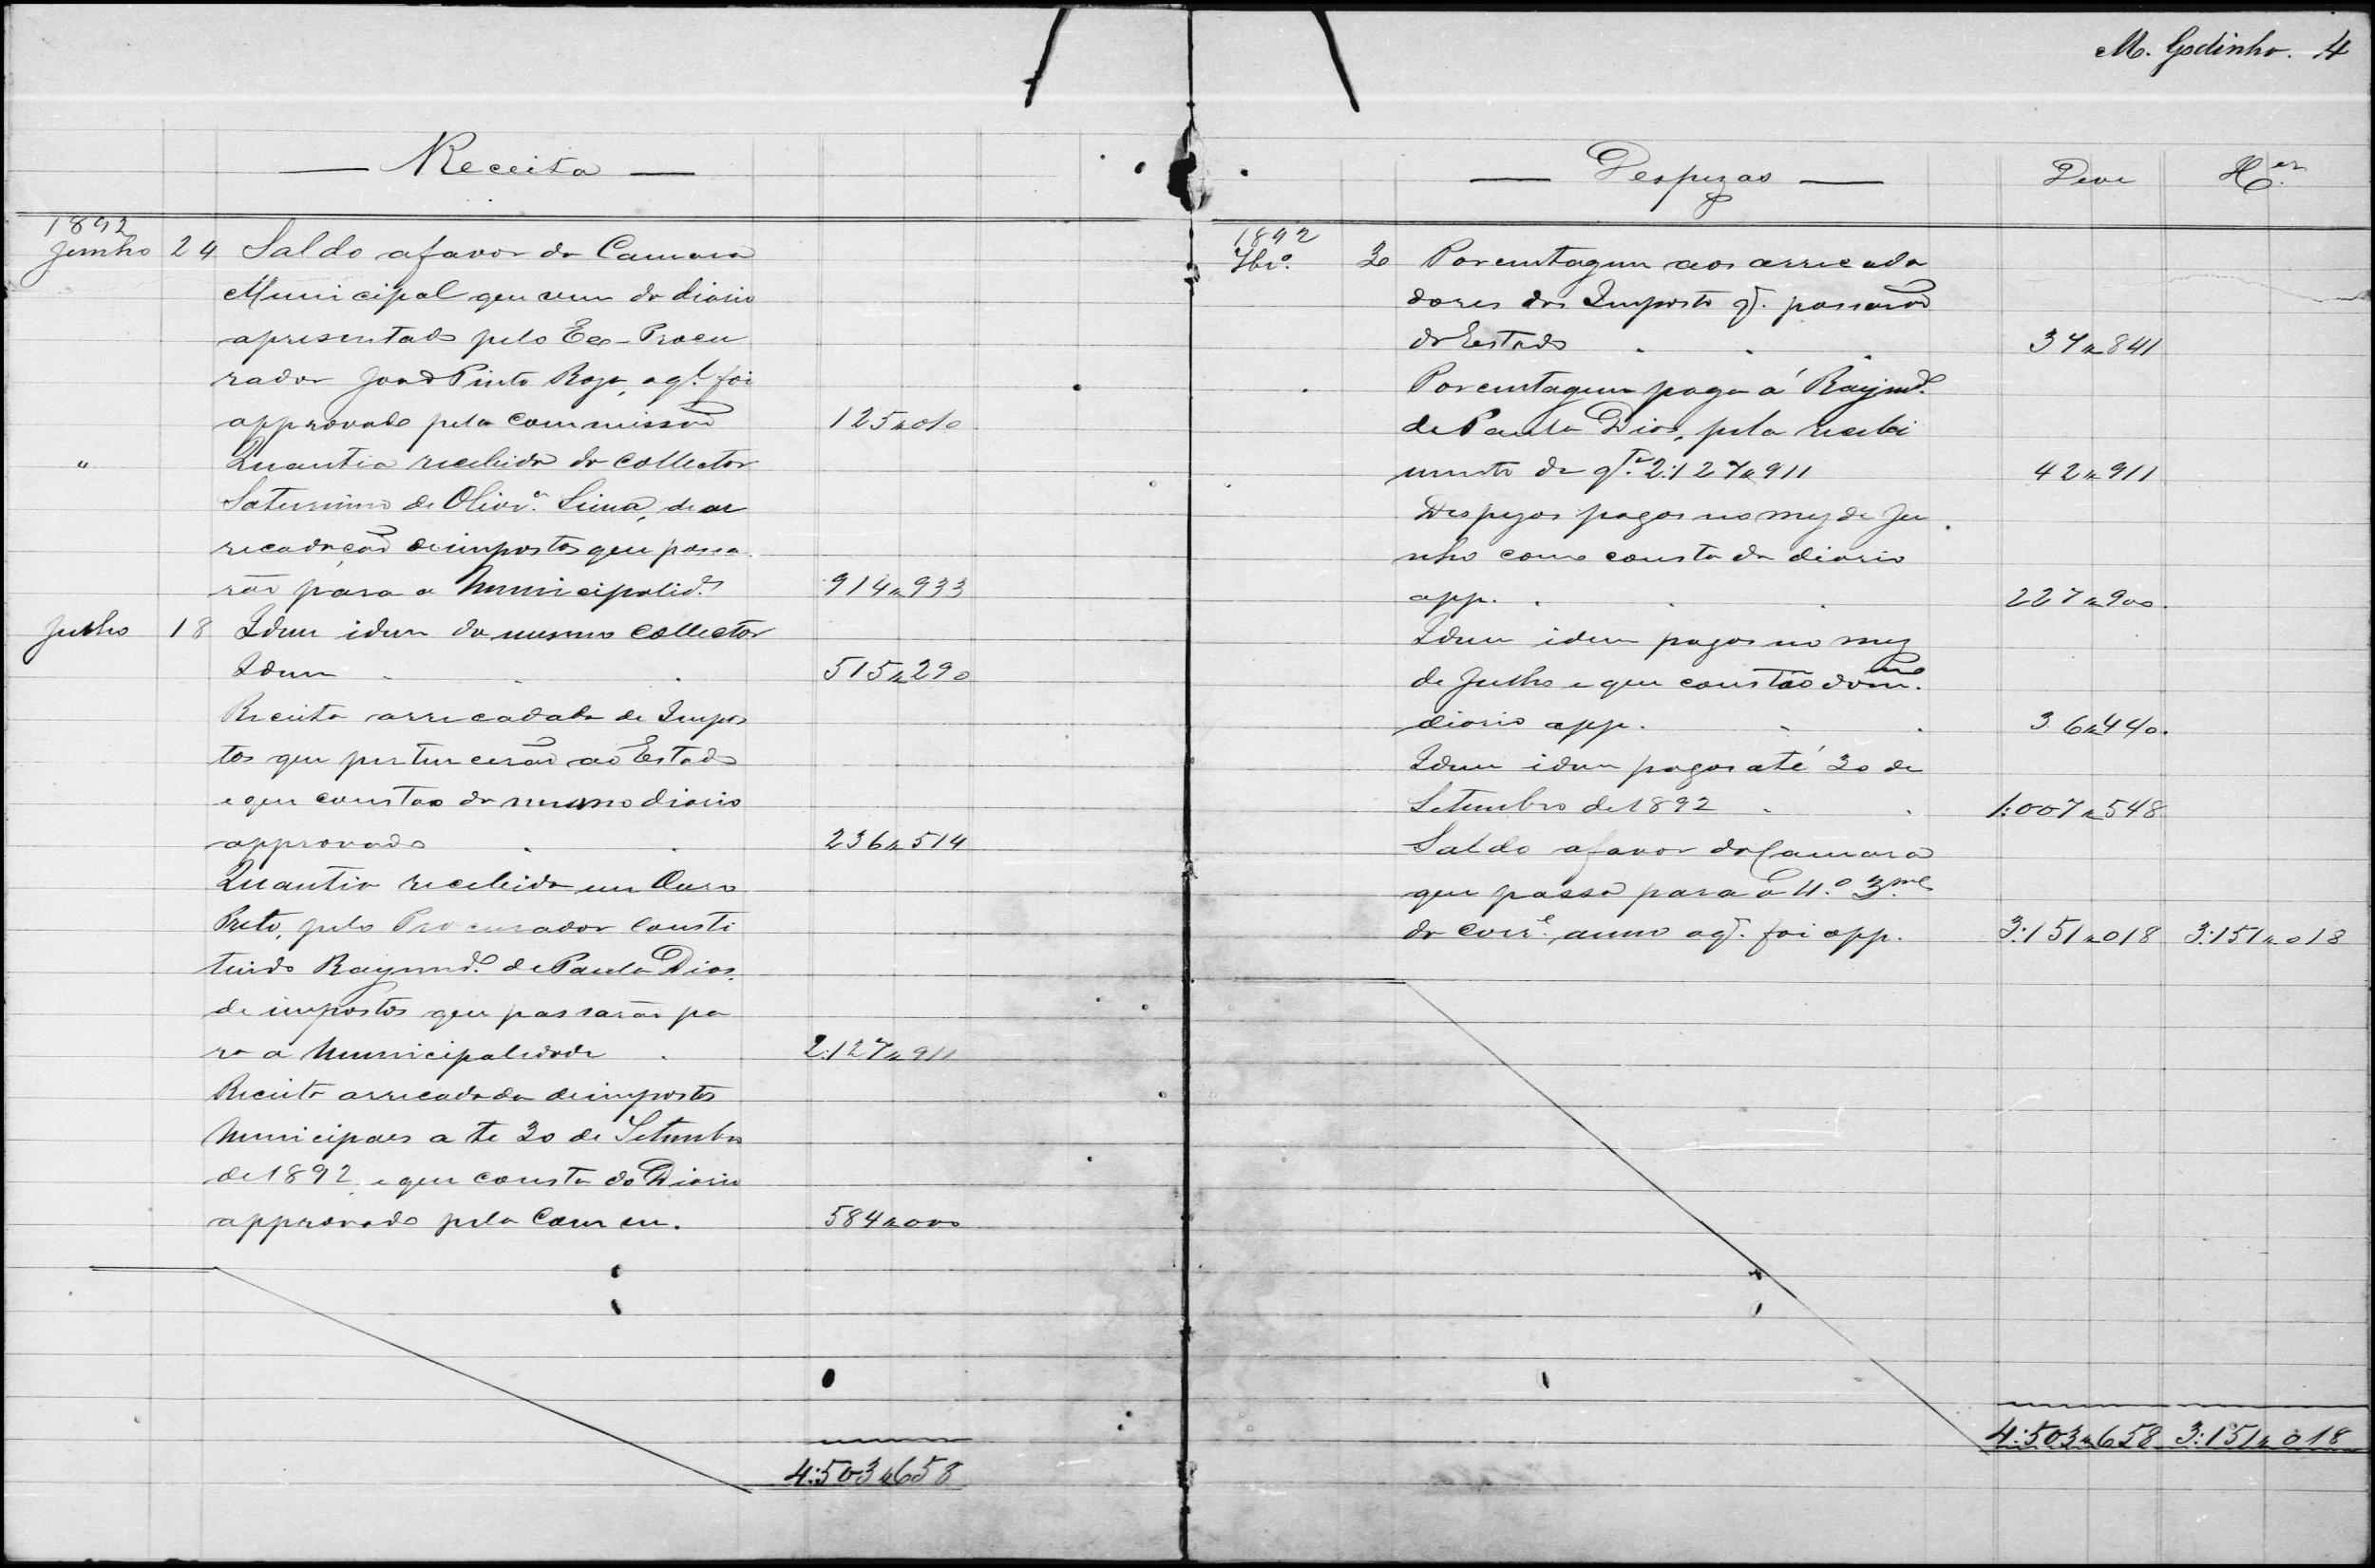 M. Godinho. 4
Receita
1892
Junho 24 Saldo afavor da Camara
Municipal que vem do diario
apresentado pelo Ex-Procu
rador João Pinto Roza, aql foi
approvado pela commissão 125"010
" Quantia recebida do Collector
Saturnino de Olivra. Lima, de ar
recadação de impostos que passa
rão para a Municipalide. 914"933
Julho 18 Idem idem do mesmo Collector
Idem 515"290
Receita arrecadada de Impos
tos que pertencerão ao Estado
e que constão do mesmo diario
approvado 236"514
Quantia recebida em Ouro
Preto, pelo Procurador Consti
tuido Raymdo. de Paula Dias,
de impostos que passarão pa
ra a Municipalidade 2:127"911
Receita arrecadada de impostos
Municipaes a te 30 de Setembro
de 1892, e que consta do Diario
approvado pela Comm. 584"000
4:503"658
Despezas Deve Her.
1892
7bro. 30 Porcentagem aos arrecada
dores dos Imposto q. passarão
do Estado 37"841
Porcentagem paga á Raymdo.
de Paula Dias, pelo recebi
mento da qta. 2:127"911 42"911
Despezas pagas no mez de Ju
nho como consta do diario
app. 227"900
Idem idem pagas no mez
de Julho e que constão do mmo.
diario app. 36"440
Idem idem pagas até 30 de
Setembro de 1892 1:007"548
Saldo afavor da Camara
que passa para o 4.º 3.me
do corre. anno aq. foi app. 3:151"018 3:151"018
4:503"658 3:151"018